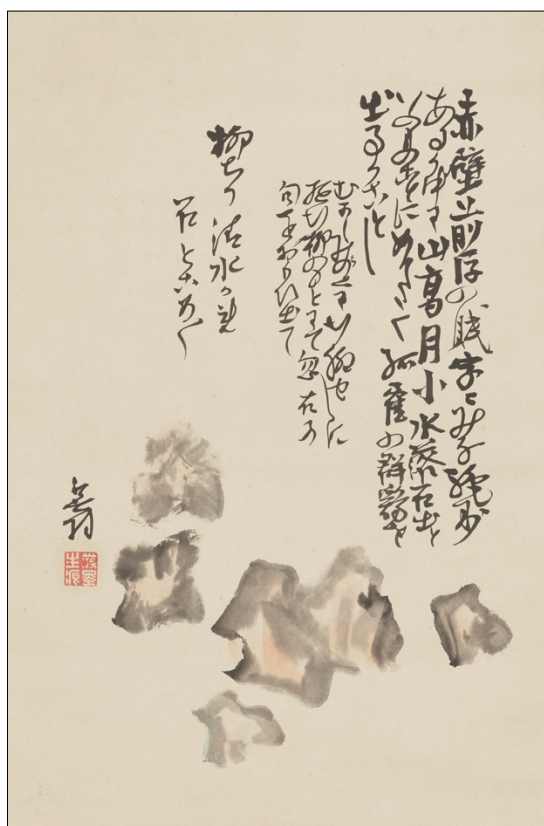 赤壁前后の賦字々みな絶妙
あるか中に山高月小水落石出と
いふものことにめてたく孤霍の群鶏を
出るかことし
むかしみちのく行脚せしに
遊行柳のもとにて忽右の
句をおもひ出て
柳ちり清水かれ
石ところ〱
蕪翁
潑墨生痕